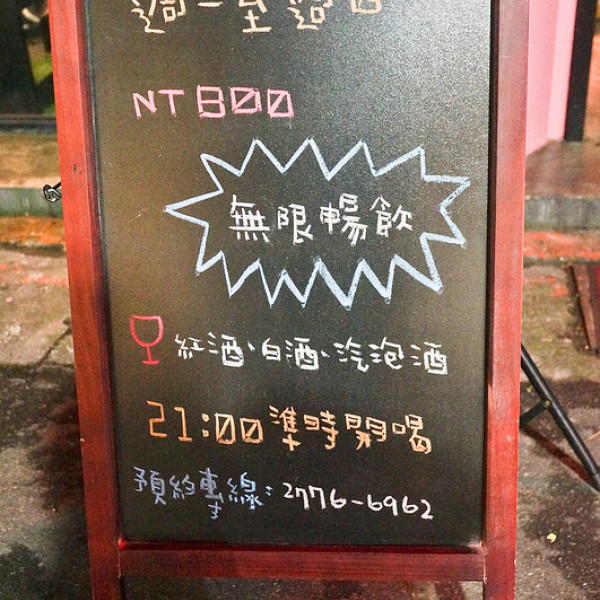 週一至週四
NT 800
無限暢飲
紅酒、白酒、汽泡酒
21:00準時開喝
預約專線:2776-6962